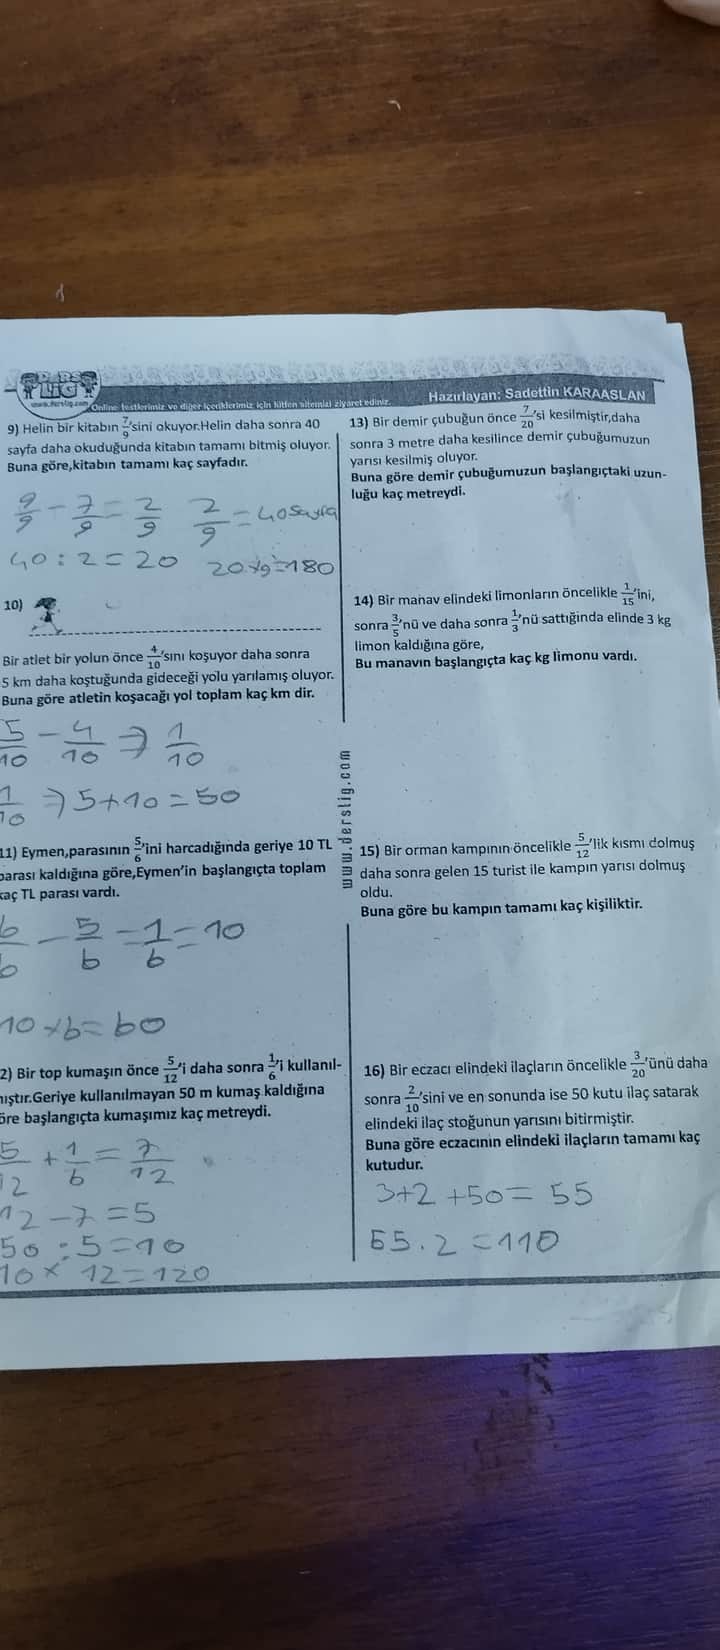 DERS LiG
www.derslig.com
Online testlerimiz ve diğer içeriklerimiz için lütfen sitemizi ziyaret ediniz.
Hazırlayan: Sadettin KARAASLAN
9) Helin bir kitabın 7/9'sini okuyor.Helin daha sonra 40
sayfa daha okuduğunda kitabın tamamı bitmiş oluyor.
Buna göre,kitabın tamamı kaç sayfadır.
9/9 - 7/9 = 2/9 2/9 = 40 sayfa
40 : 2 = 20 20 x 9 = 180
10)
Bir atlet bir yolun önce 4/10'sını koşuyor daha sonra
5 km daha koştuğunda gideceği yolu yarılamış oluyor.
Buna göre atletin koşacağı yol toplam kaç km dir.
5/10 - 4/10 ⇒ 1/10
1/10 ⇒ 5+10 = 50
11) Eymen,parasının 5/6'ini harcadığında geriye 10 TL
parası kaldığına göre,Eymen'in başlangıçta toplam
kaç TL parası vardı.
6/6 - 5/6 = 1/6 = 10
10 x 6 = 60
2) Bir top kumaşın önce 5/12'i daha sonra 1/6'i kullanıl-
mıştır.Geriye kullanılmayan 50 m kumaş kaldığına
öre başlangıçta kumaşımız kaç metreydi.
5/12 + 1/6 = 7/12
12 - 7 = 5
50 : 5 = 10
10 x 12 = 120
www.derslig.com
13) Bir demir çubuğun önce 7/20'si kesilmiştir,daha
sonra 3 metre daha kesilince demir çubuğumuzun
yarısı kesilmiş oluyor.
Buna göre demir çubuğumuzun başlangıçtaki uzun-
luğu kaç metreydi.
14) Bir manav elindeki limonların öncelikle 1/15'ini,
sonra 3/5'nü ve daha sonra 1/3'nü sattığında elinde 3 kg
limon kaldığına göre,
Bu manavın başlangıçta kaç kg limonu vardı.
15) Bir orman kampının öncelikle 5/12'lik kısmı dolmuş
daha sonra gelen 15 turist ile kampın yarısı dolmuş
oldu.
Buna göre bu kampın tamamı kaç kişiliktir.
16) Bir eczacı elindeki ilaçların öncelikle 3/20'ünü daha
sonra 2/10'sini ve en sonunda ise 50 kutu ilaç satarak
elindeki ilaç stoğunun yarısını bitirmiştir.
Buna göre eczacının elindeki ilaçların tamamı kaç
kutudur.
3+2 +50 = 55
55 . 2 = 110